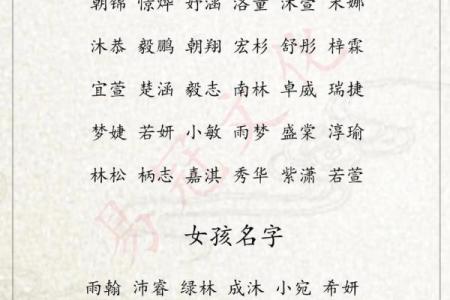 朝锦 惊烨 妤涵 洛童 沐萱 采娜
沐恭 毅鹏 朝翔 宏杉 舒彤 梓霖
宜萱 楚涵 毅志 南林 卓威 瑞捷
梦婕 若妍 小敏 雨梦 盛棠 淳瑜
林松 柄志 嘉淇 秀华 紫潇 若萱
易冠文化
女孩名字
雨翰 沛睿 绿林 成沐 小宛 希妍